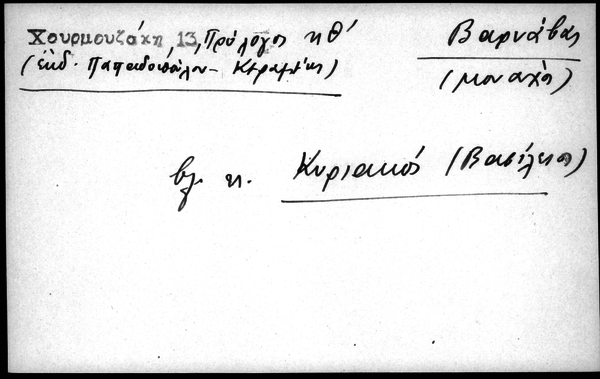 Χουρμουζάκη, 13, Πρόλογος κθ′
(ἐκδ. Παπαδοπούλου-Κεραμέως)
Βαρνάβας
(μοναχὸς)
βλ. κ. Κυριακός (Βασίλειος)